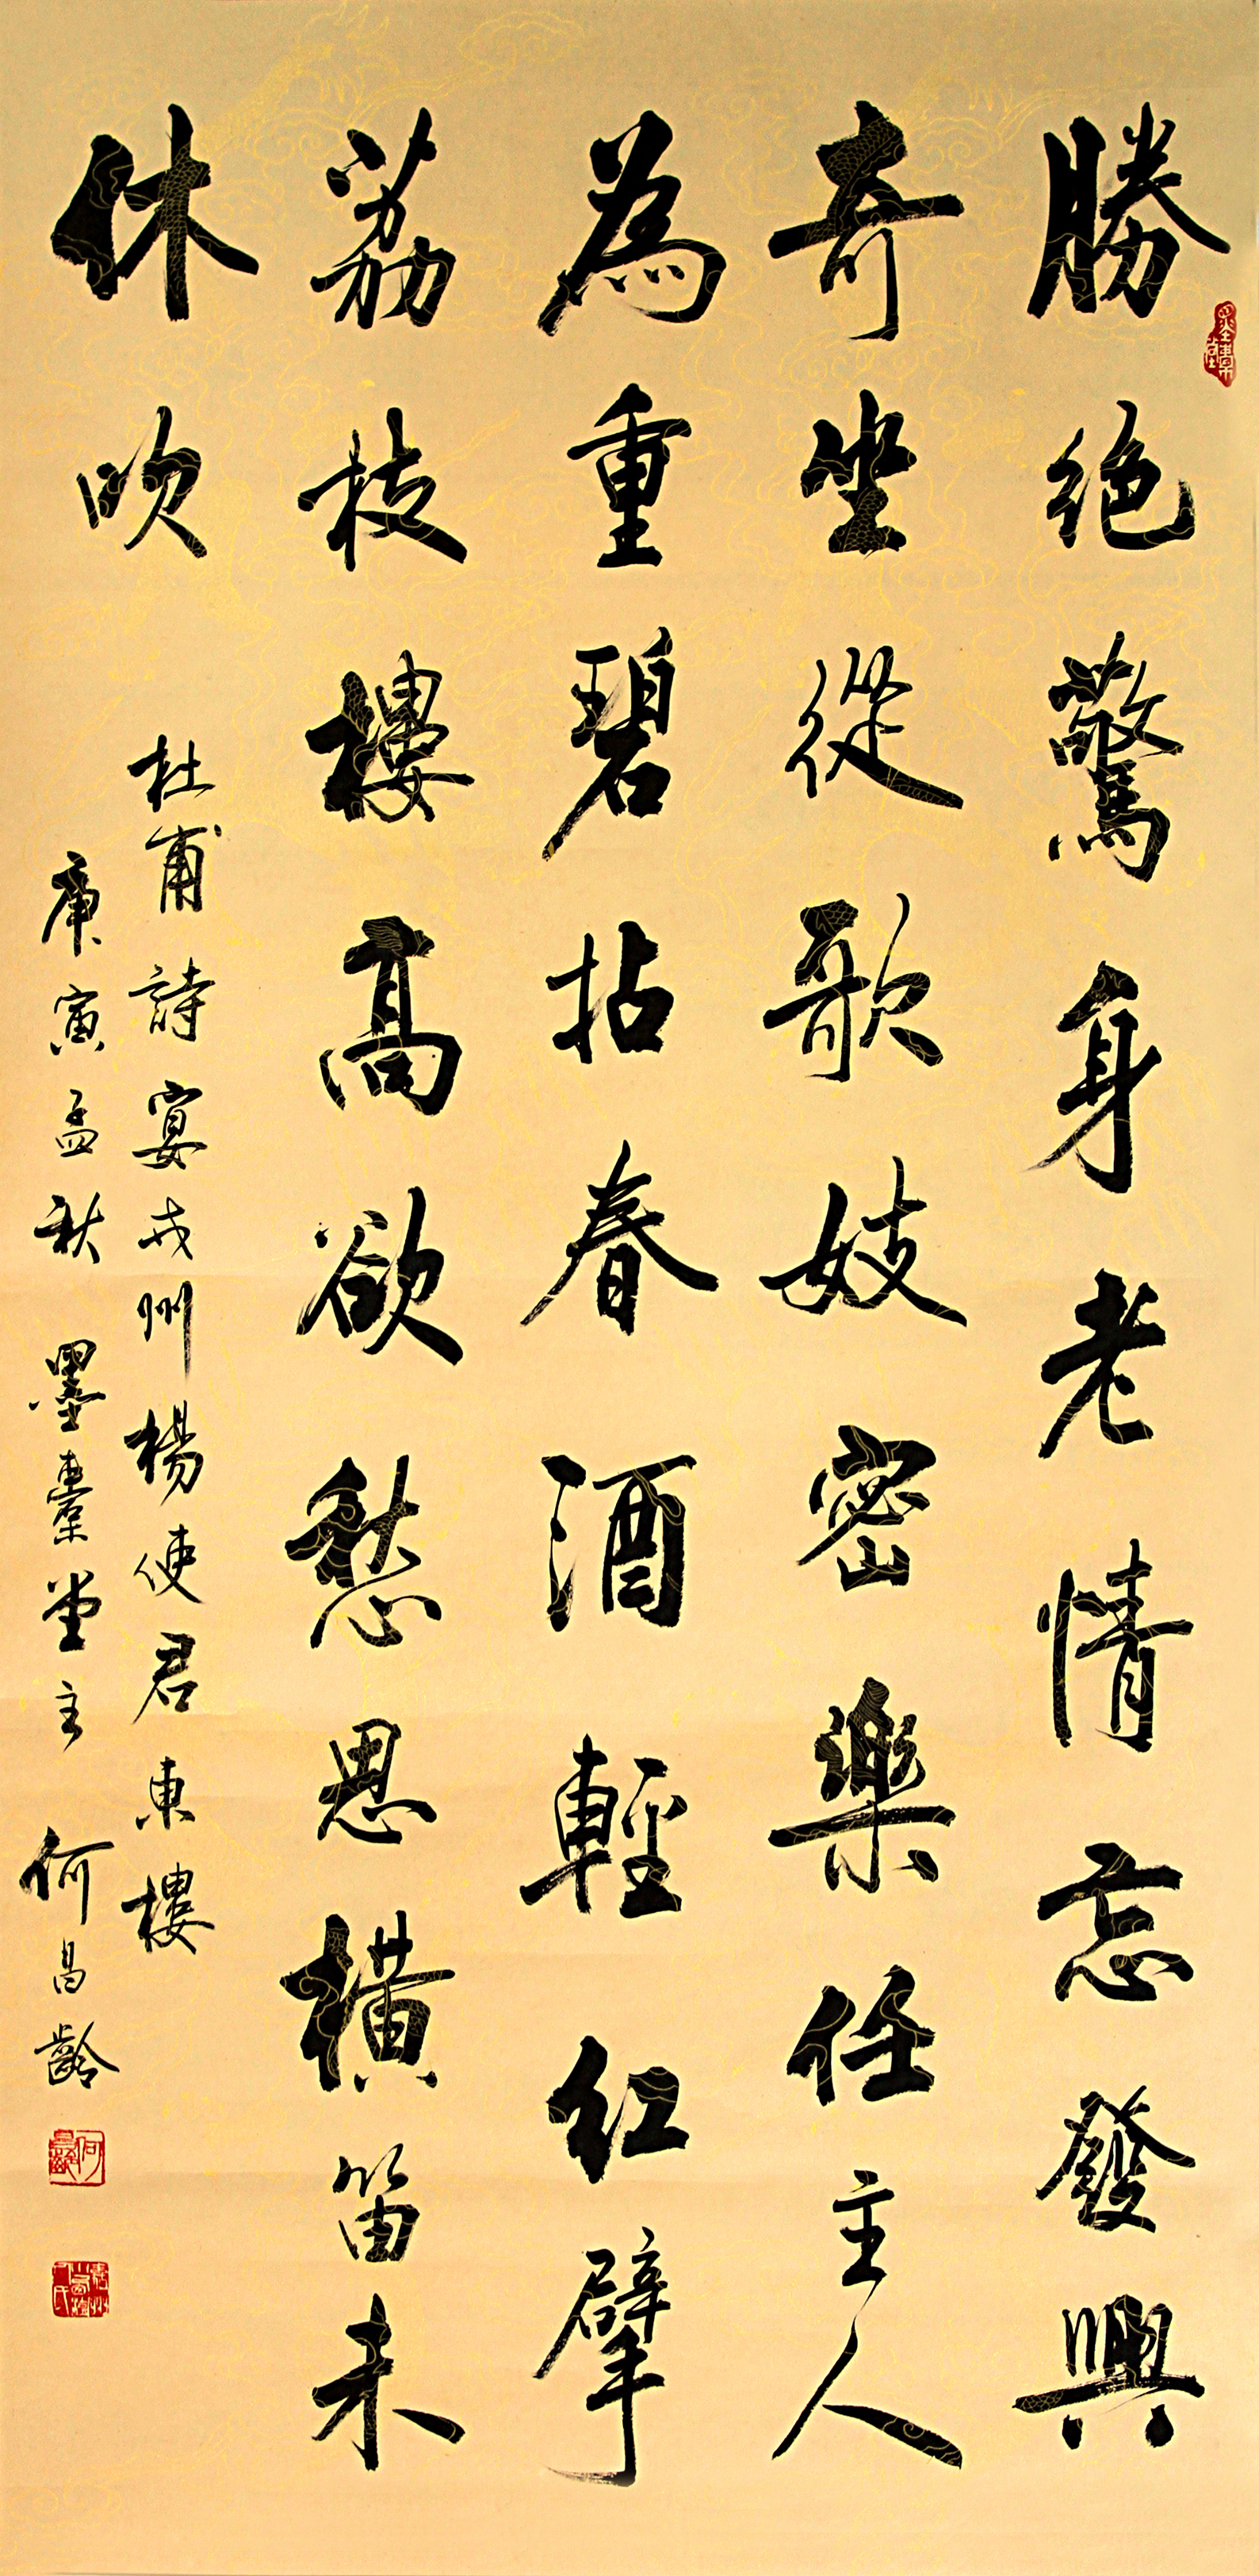 勝絕驚身老情忘發興
奇坐從歌妓密樂任主人
為重碧拈春酒輕紅擘
荔枝樓高欲愁思橫笛未
休吹
杜甫詩宴戎州楊使君東樓
庚寅孟秋墨橐堂主何昌齡
何昌齡